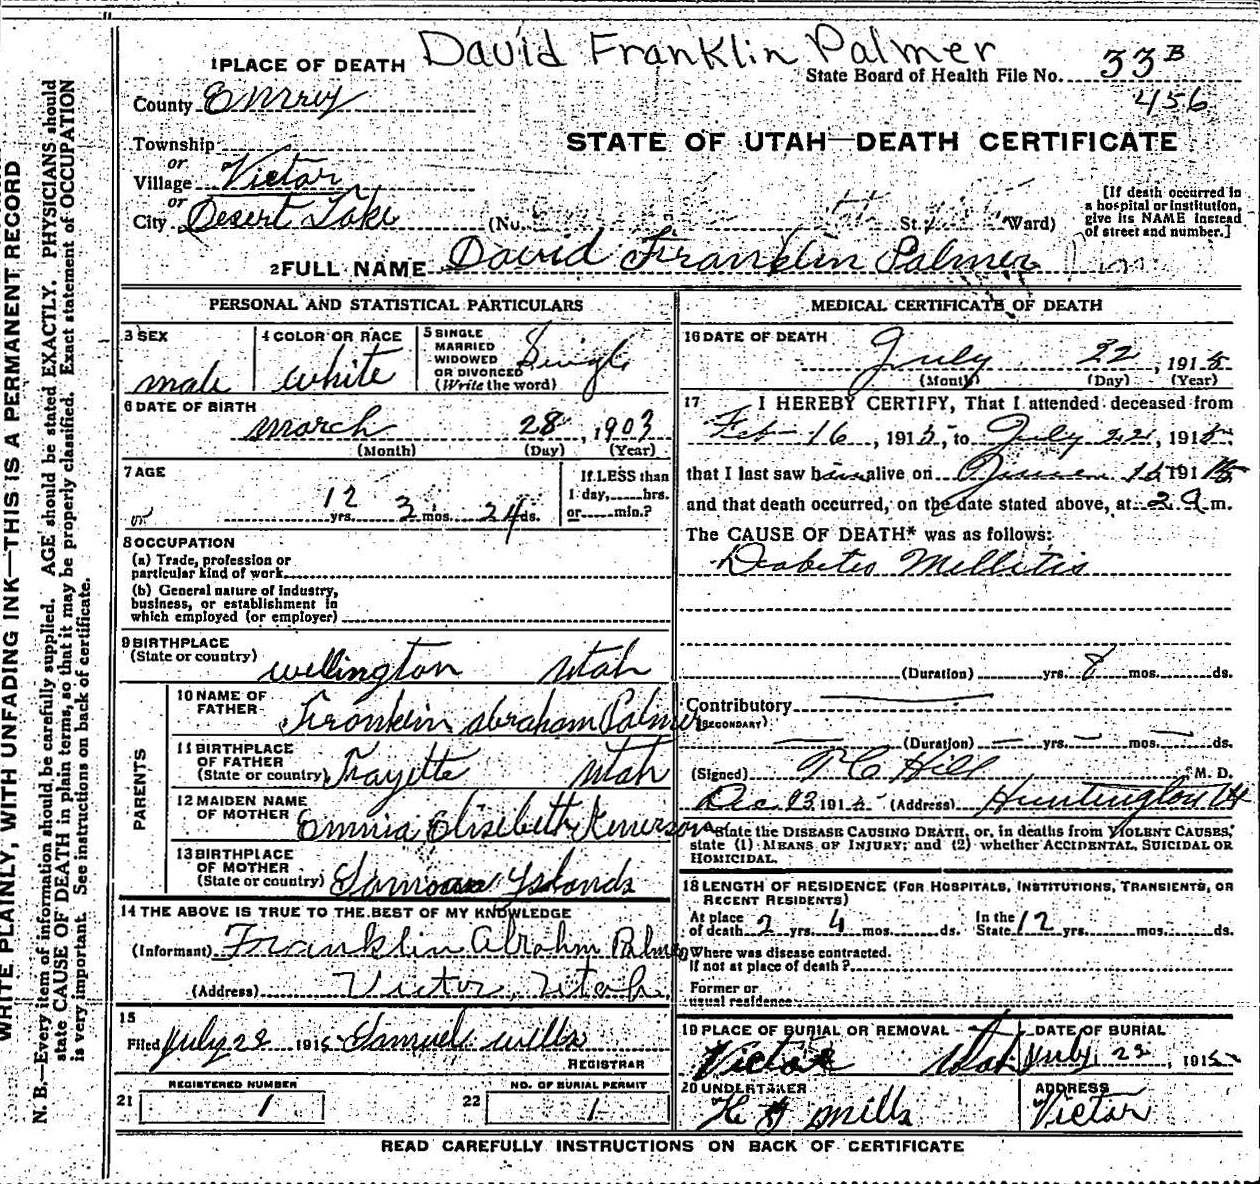 David Franklin Palmer
1 PLACE OF DEATH
State Board of Health File No. 33 B
456
County Emery
STATE OF UTAH—DEATH CERTIFICATE
Township
or
Village Victor
or
City Desert Lake (No. St., Ward)
[If death occurred in a hospital or institution, give its NAME instead of street and number.]
2 FULL NAME David Franklin Palmer
PERSONAL AND STATISTICAL PARTICULARS
3 SEX
male
4 COLOR OR RACE
white
5 SINGLE
MARRIED
WIDOWED
OR DIVORCED
(Write the word)
Single
6 DATE OF BIRTH
March 28, 1903
(Month) (Day) (Year)
7 AGE
12 yrs. 3 mos. 24 ds.
If LESS than
1 day, hrs.
or min.?
8 OCCUPATION
(a) Trade, profession or
particular kind of work
(b) General nature of industry,
business, or establishment in
which employed (or employer)
9 BIRTHPLACE
(State or country) Wellington Utah
PARENTS
10 NAME OF
FATHER Franklin Abraham Palmer
11 BIRTHPLACE
OF FATHER
(State or country) Fayette Utah
12 MAIDEN NAME
OF MOTHER Emma Elisebeth
13 BIRTHPLACE
OF MOTHER
(State or country) Samoan Islands
14 THE ABOVE IS TRUE TO THE BEST OF MY KNOWLEDGE
(Informant) Franklin Abrahm Palmer
(Address) Victor, Utah
15
Filed July 22 1915 Samuel Wells
REGISTRAR
21 REGISTERED NUMBER
1
22 NO. OF BURIAL PERMIT
1
MEDICAL CERTIFICATE OF DEATH
16 DATE OF DEATH
July 22, 1915
(Month) (Day) (Year)
17 I HEREBY CERTIFY, That I attended deceased from
Feb 16, 1915, to July 22, 1915,
that I last saw him alive on June 1915
and that death occurred, on the date stated above, at 2 a m.
The CAUSE OF DEATH* was as follows:
Diabetes Mellitis
(Duration) yrs. 8 mos. ds.
Contributory
(SECONDARY)
(Duration) yrs. mos. ds.
(Signed) T C Hill M. D.
Dec. 23 1915 (Address) Huntington Ut
*State the DISEASE CAUSING DEATH, or, in deaths from VIOLENT CAUSES,
state (1) MEANS OF INJURY; and (2) whether ACCIDENTAL, SUICIDAL OR
HOMICIDAL.
18 LENGTH OF RESIDENCE (FOR HOSPITALS, INSTITUTIONS, TRANSIENTS, OR
RECENT RESIDENTS)
At place
of death 2 yrs. 4 mos. ds. In the
State 12 mos. ds.
Where was disease contracted.
If not at place of death?
Former or
usual residence
19 PLACE OF BURIAL OR REMOVAL
Victor Utah
DATE OF BURIAL
July 22, 1915
20 UNDERTAKER
H J Mills
ADDRESS
Victor
READ CAREFULLY INSTRUCTIONS ON BACK OF CERTIFICATE
WRITE PLAINLY, WITH UNFADING INK—THIS IS A PERMANENT RECORD
N. B.—Every item of information should be carefully supplied. AGE should be stated EXACTLY. PHYSICIANS should
state CAUSE OF DEATH in plain terms, so that it may be properly classified. Exact statement of OCCUPATION
is very important. See instructions on back of certificate.